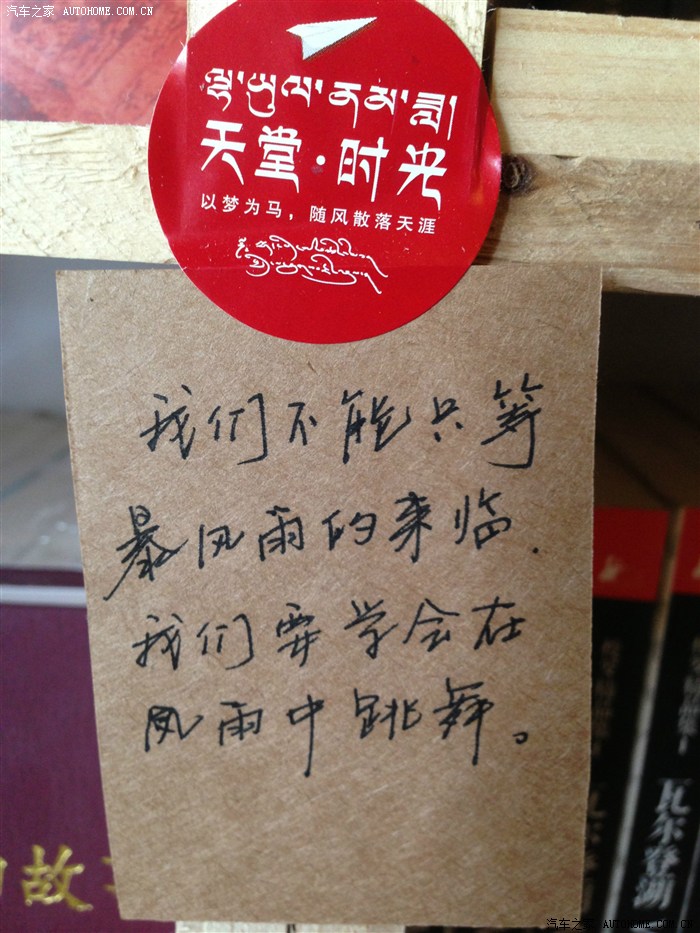 汽车之家 AUTOHOME.COM.CN
天堂·时光
以梦为马，随风散落天涯
我们不能只等
暴风雨的来临.
我们要学会在
风雨中跳舞。
故
瓦尔登湖
汽车之家 AUTOHOME.COM.CN